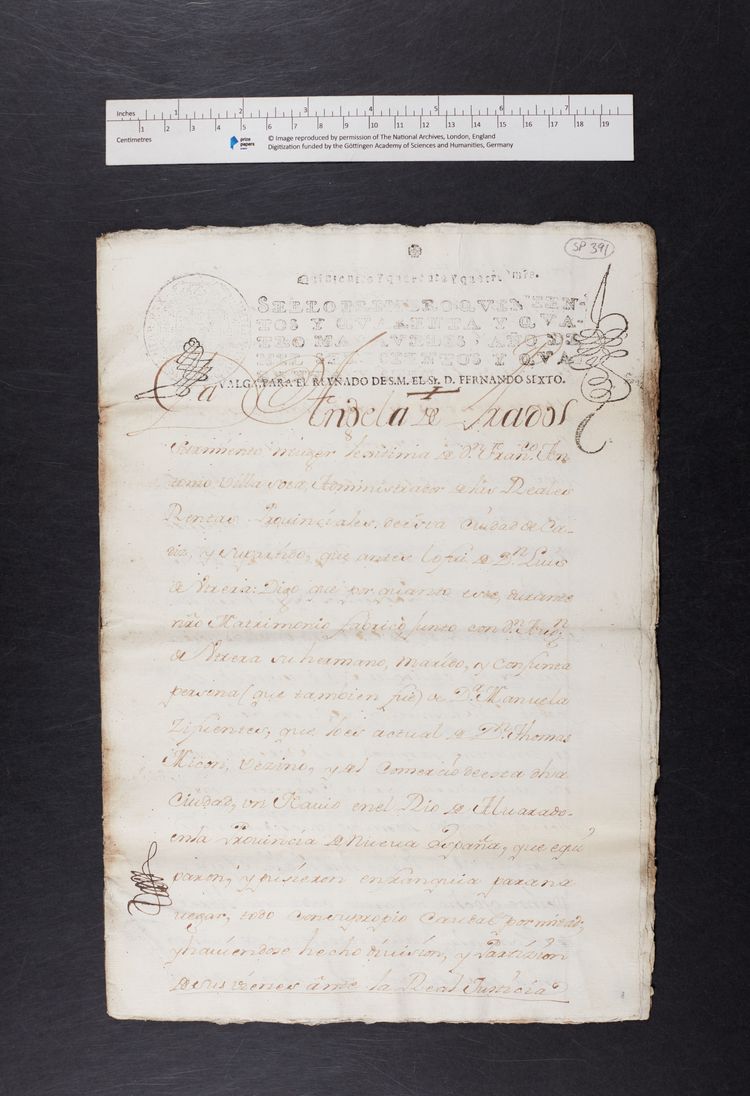 Inches 1 2 3 4 5 6 7
Centimetres 1 2 3 4 5 6 7 8 9 10 11 12 13 14 15 16 17 18 19
prize papers
© Image reproduced by permission of The National Archives, London, England
Digitization funded by the Göttingen Academy of Sciences and Humanities, Germany
SP 391
Quinientos y quarenta y quatro mrs.
SELLO PRIMERO QVINIEN-
TOS Y QVARENTA Y QVA
TRO MARAVEDIS, AÑO DE
MIL SETECIENTOS Y QVA
VALGA PARA EL REYNADO DE S.M. EL Sr. D. FERNANDO SEXTO.
Da Angela de Prados
Sarmiento muger lexitima de Dn. Franco. An
tonio Villa Sota, Administrador de las Reales
Rentas Provinciales, de esta Ciudad de Ca-
diz, y su partido, que antes lo fui de Dn. Luis
de Herera: Digo que por quanto este, durante
nro Matrimonio fabricò junto con Dn. Anto.
de Herera su hermano, marido, y conjunta
persona (que tambien fue) de Da. Manuela
Zifuentes, que lo es actual de Dn. Thomas
Micon, Vezino, y del Comercio de esta dha
Ciudad, un Navio en el Rio de Alvarado
en la Provincia de Nueva España, que equi
paron, y pusieron en franquia para na
vegar, todo con su propio Caudal por mitad,
y haviendose hecho division, y Partizion
de sus vienes ante la Real Justicia